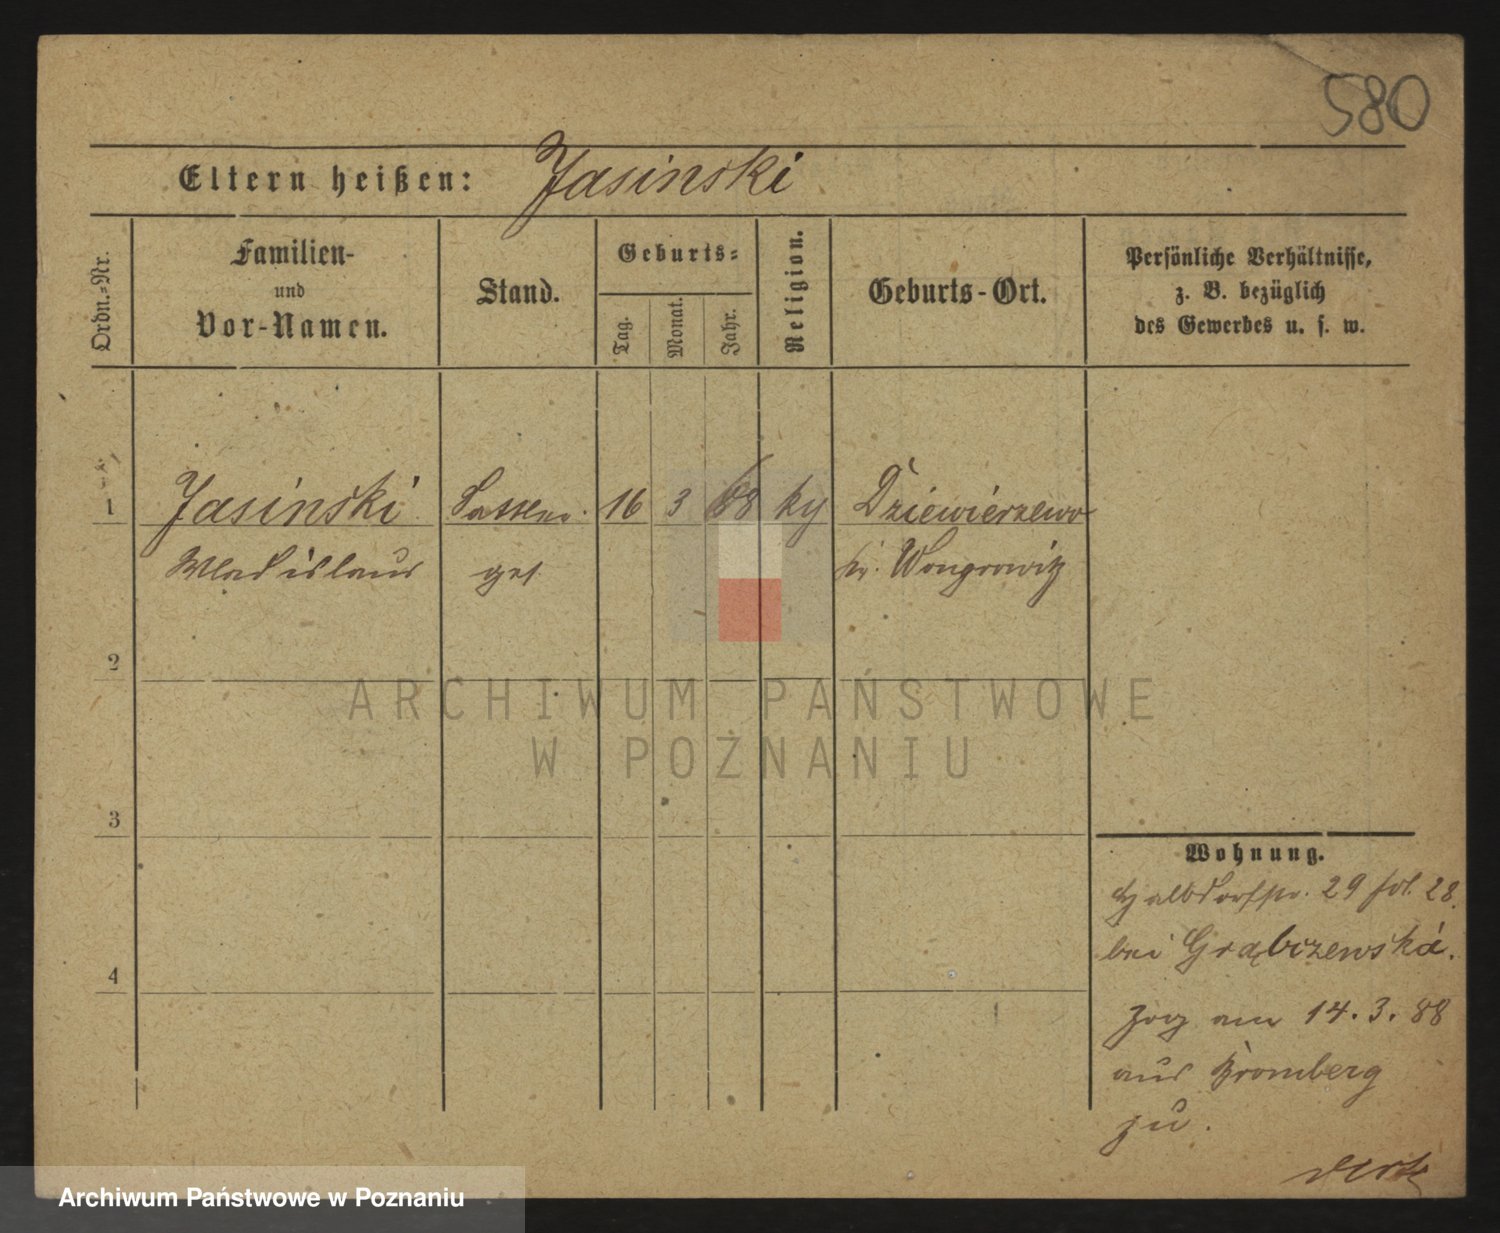 580
Eltern heißen: Jasinski
Ordn.-Nr.
Familien-
und
Vor-Namen.
Stand.
Geburts-
Tag.
Monat.
Jahr.
Religion.
Geburts-Ort.
Persönliche Verhältnisse,
z. B. bezüglich
des Gewerbes u. s. w.
1 Jasinski Sattler 16 3 68 k Dziewierzewo
Wladislaus ges. Kr. Wongrowitz
2
3
4
Wohnung.
Halbdorfstr. 29 fol. 28.
bei Grąbczewska.
Zog am 14.3.88
aus Bromberg
zu.
ARCHIWUM PAŃSTWOWE
W POZNANIU
Archiwum Państwowe w Poznaniu